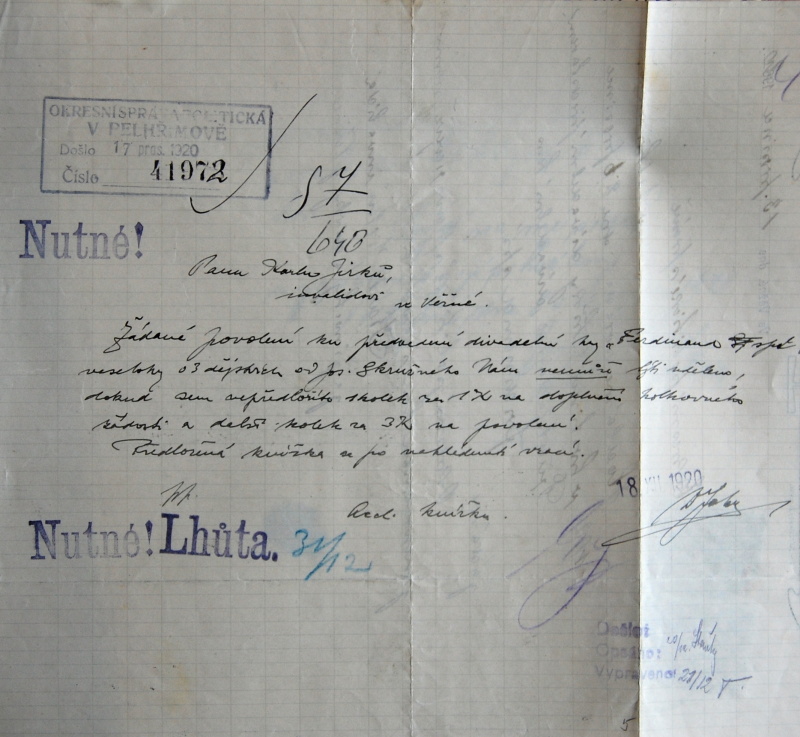 OKRESNÍ SPRÁVA POLITICKÁ
V PELHŘIMOVĚ
Došlo 17 pros. 1920
Číslo 41972
§ 7
640
Nutné!
Panu Karlu Jirků,
invalidovi ve Věžné.
Žádané povolení ku předvedení divadelní hry „Ferdinand
veselohry o 3 dějstvích od Jos. Skružného Vám nemůže býti uděleno,
dokud sem nepředložíte kolek za 1 K na doplnění kolkovného
žádosti a další kolek za 3 K na povolení.
Předložená knížka se po nahlédnutí vrací.
18 XII 1920
knížku.
Nutné! Lhůta. 31/12
Došlo:
Opsáno:
Vypraveno: 28/12
5